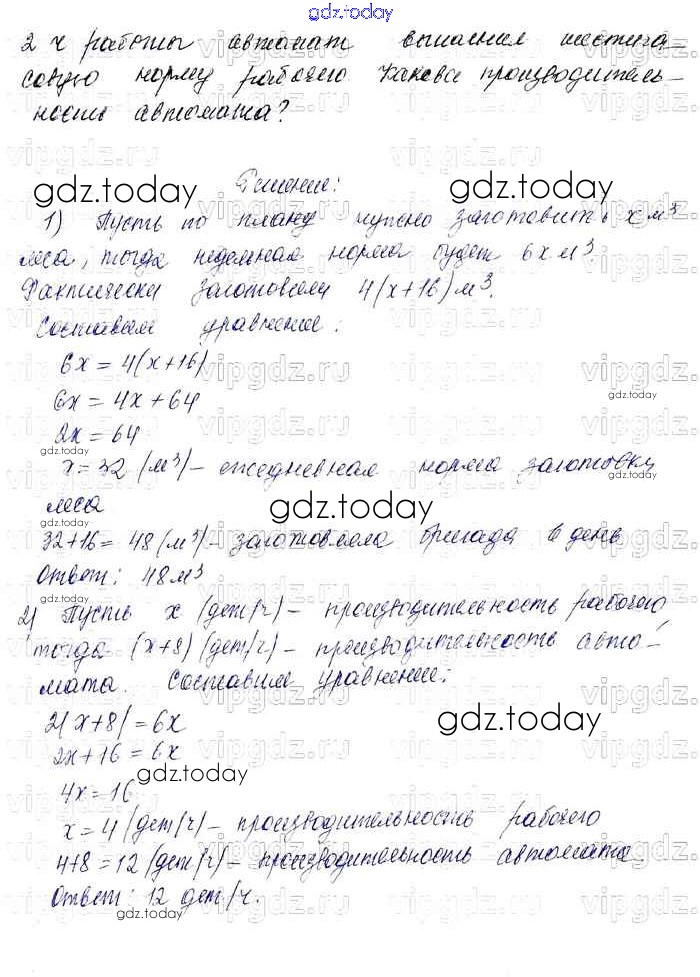 gdz.today
2 ч работы автомат выполнил шестича-
совую норму рабочего. Какова производитель-
ность автомата?
gdz.today
Решение:
1) Пусть по плану нужно заготовить x м³
леса, тогда недельная норма будет 6x м³.
Фактически заготовили 4(x+16) м³.
Составим уравнение:
6x = 4(x+16)
6x = 4x + 64
2x = 64
x = 32 (м³) – ежедневная норма заготовки
леса
32+16 = 48 (м³) – заготовила бригада в день
Ответ: 48 м³
2) Пусть x (дет/ч) – производительность рабочего,
тогда (x+8) (дет/ч) – производительность авто-
мата. Составим уравнение:
2(x+8) = 6x
2x+16 = 6x
4x = 16
x = 4 (дет/ч) – производительность рабочего
4+8 = 12 (дет/ч) – производительность автомата.
Ответ: 12 дет/ч.
gdz.today
vipgdz.ru